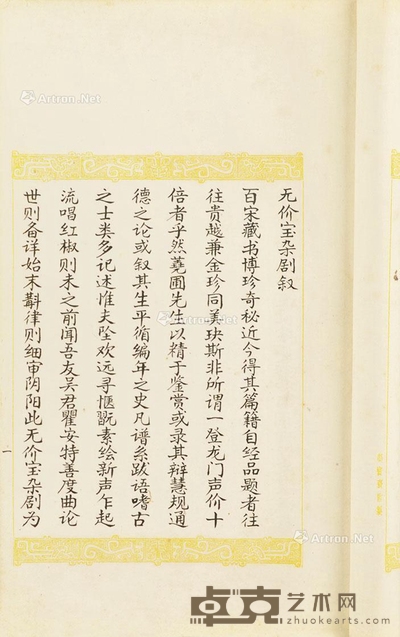 无价宝杂剧叙
百宋藏书博珍奇秘近今得其篇籍自经品题者往
往贵越兼金珍同美玦斯非所谓一登龙门声价十
倍者乎然荛圃先生以精于鉴赏或录其辩慧规通
德之论或叙其生平循编年之史凡谱系跋语嗜古
之士类多记述惟夫坠欢远寻惬戬素绘新声乍起
流唱红椒则未之前闻吾友吴君瞿安特善度曲论
世则备详始末斠律则细审阴阳此无价宝杂剧为
一
Artron.Net
Artron.Net
Artron.Net
Artron.Net
卓克艺术网
www.zhuokearts.com